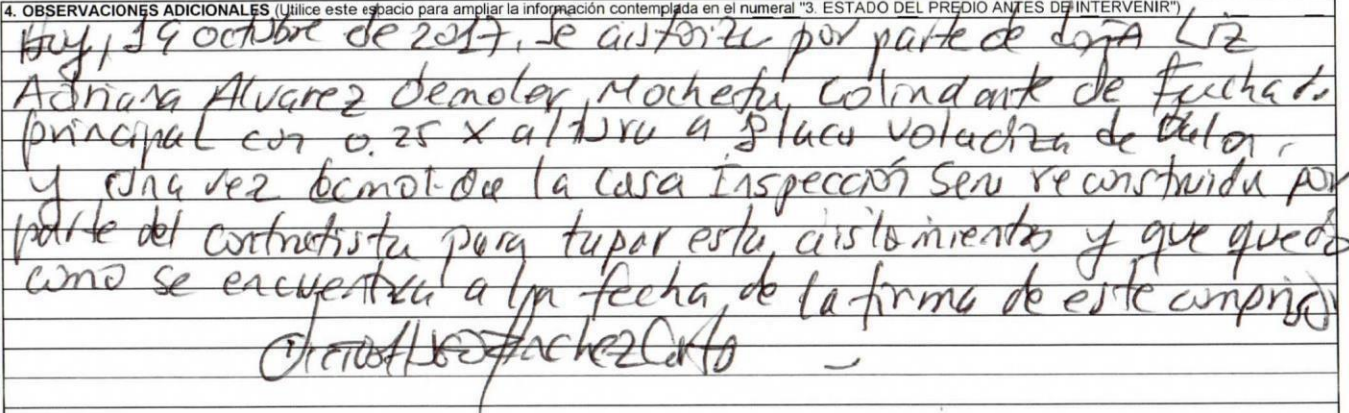 4. OBSERVACIONES ADICIONALES (Utilice este espacio para ampliar la información contemplada en el numeral "3. ESTADO DEL PREDIO ANTES DE INTERVENIR")
Hoy, 19 octubre de 2017, se autoriza por parte de doña Liz
Adriana Alvarez demoler Mocheta colindante de fachada
principal con 0.25 x altura a placa voladiza de
y una vez la casa Inspección Sera reconstruida por
parte del contratista para tapar este aislamiento y que quede
como se encuentra a la fecha de la firma de este